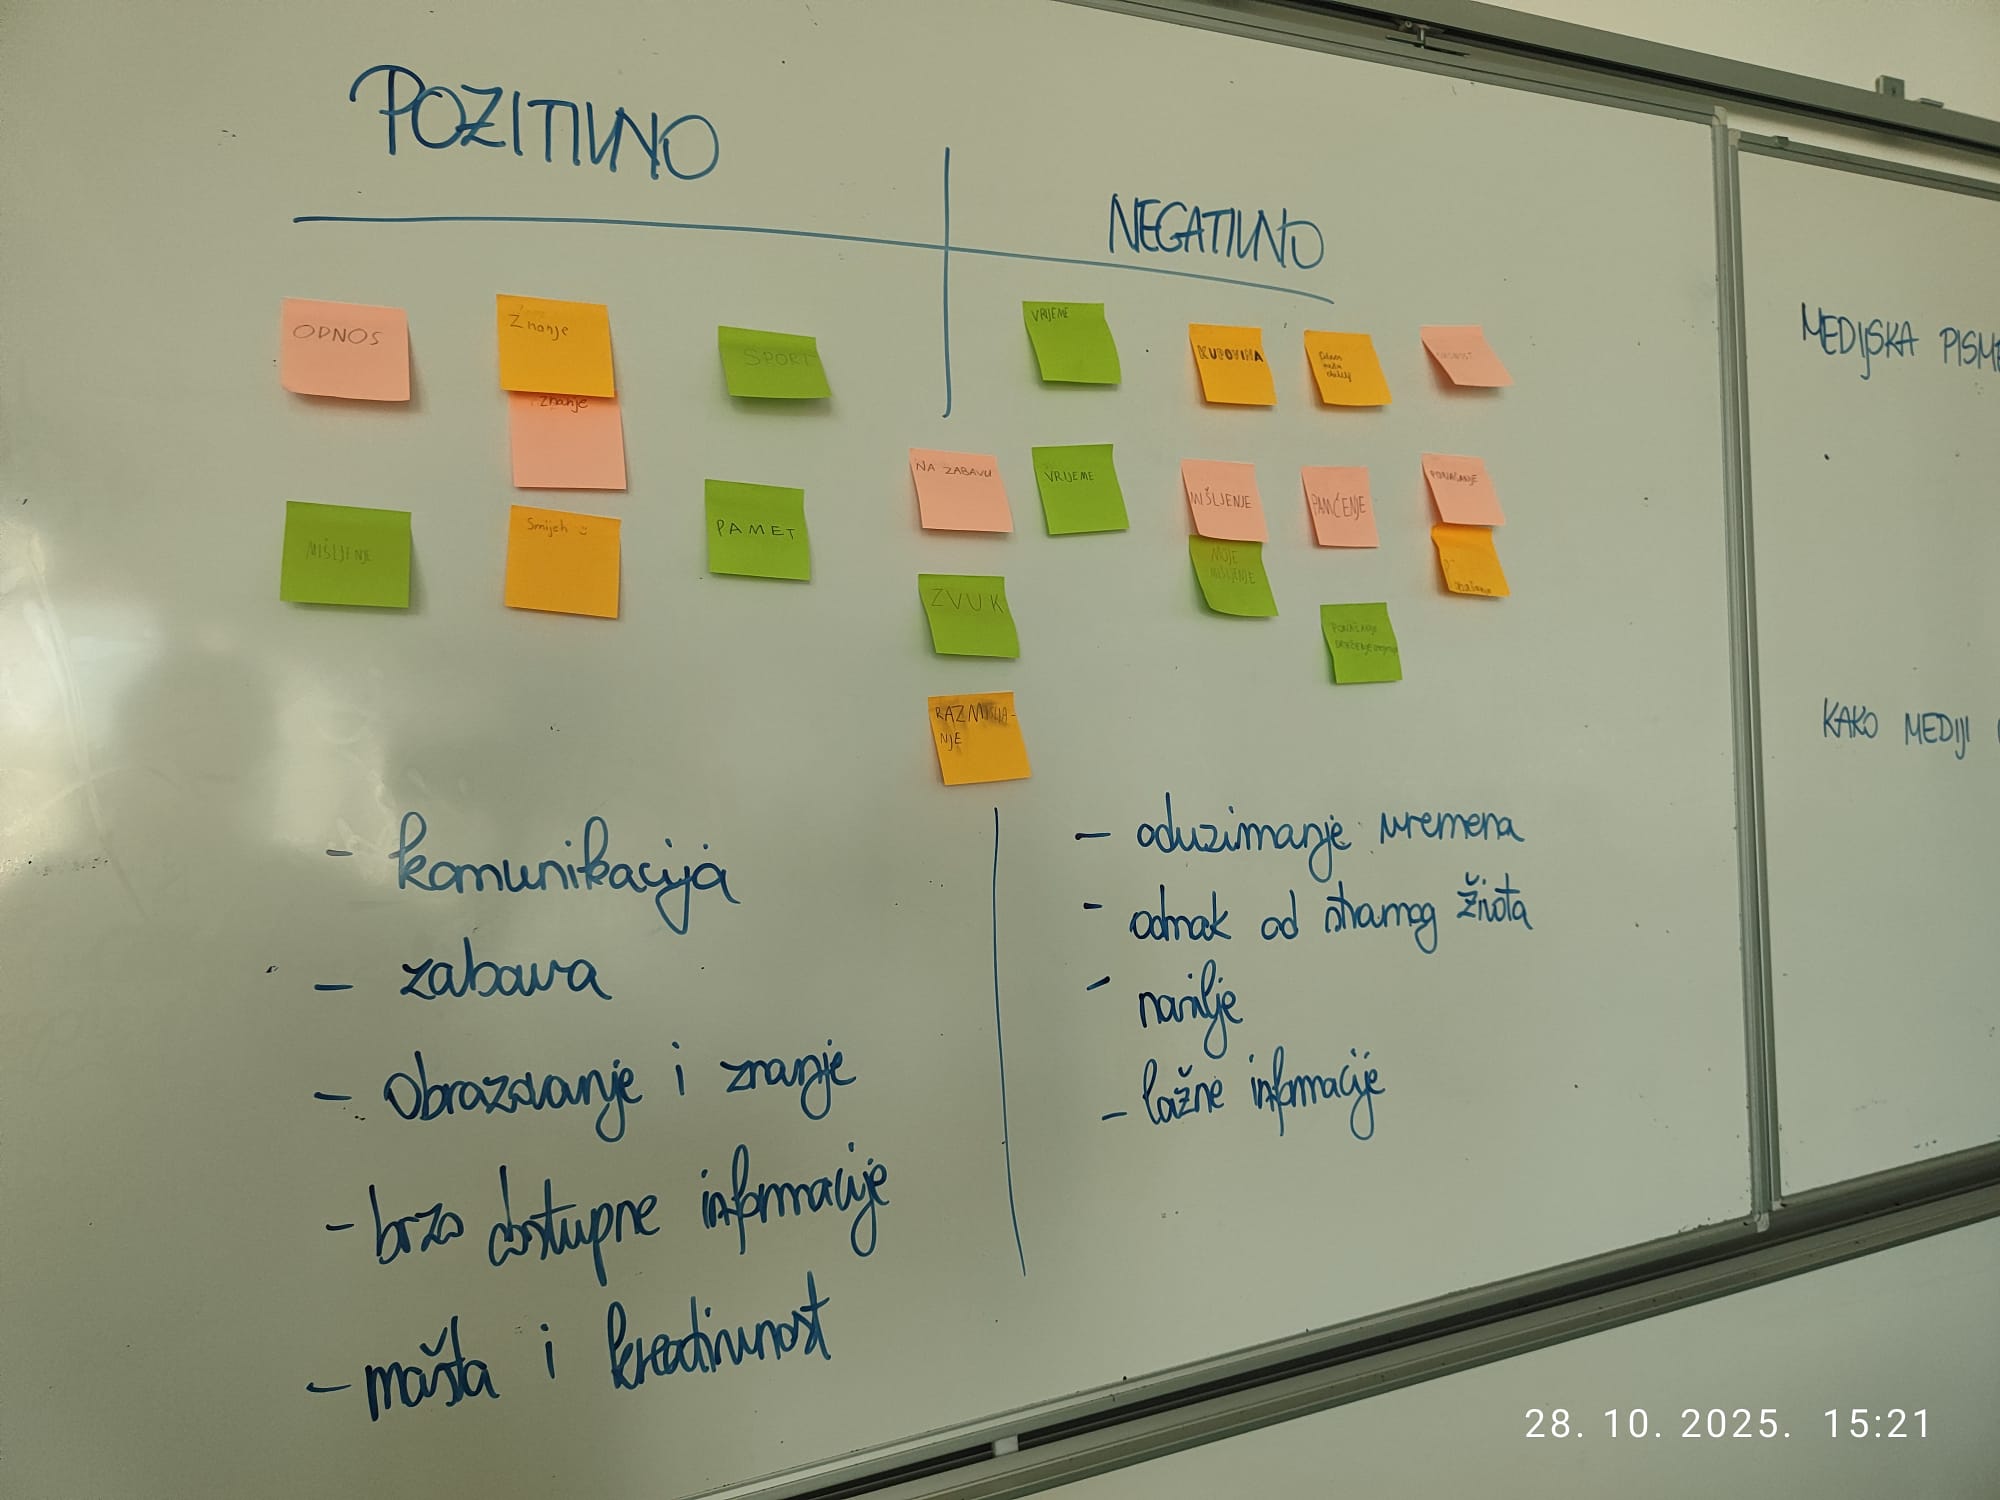 POZITIVNO
NEGATIVNO
ODNOS
Znanje
znanje
SPORT
MIŠLJENJE
Smijeh
PAMET
VRIJEME
KUPOVINA
NA ZABAVU
VRIJEME
MIŠLJENJE
PAMĆENJE
PONAŠANJE
MOJE
MIŠLJENJE
ZVUK
PONAŠANJE
RAZMIŠLJA-
NJE
- komunikacija
- zabava
- obrazovanje i znanje
- brzo dostupne informacije
- mašta i kreativnost
- oduzimanje vremena
- odmak od stvarnog života
- nasilje
- lažne informacije
MEDIJSKA
KAKO MEDIJI
28. 10. 2025. 15:21